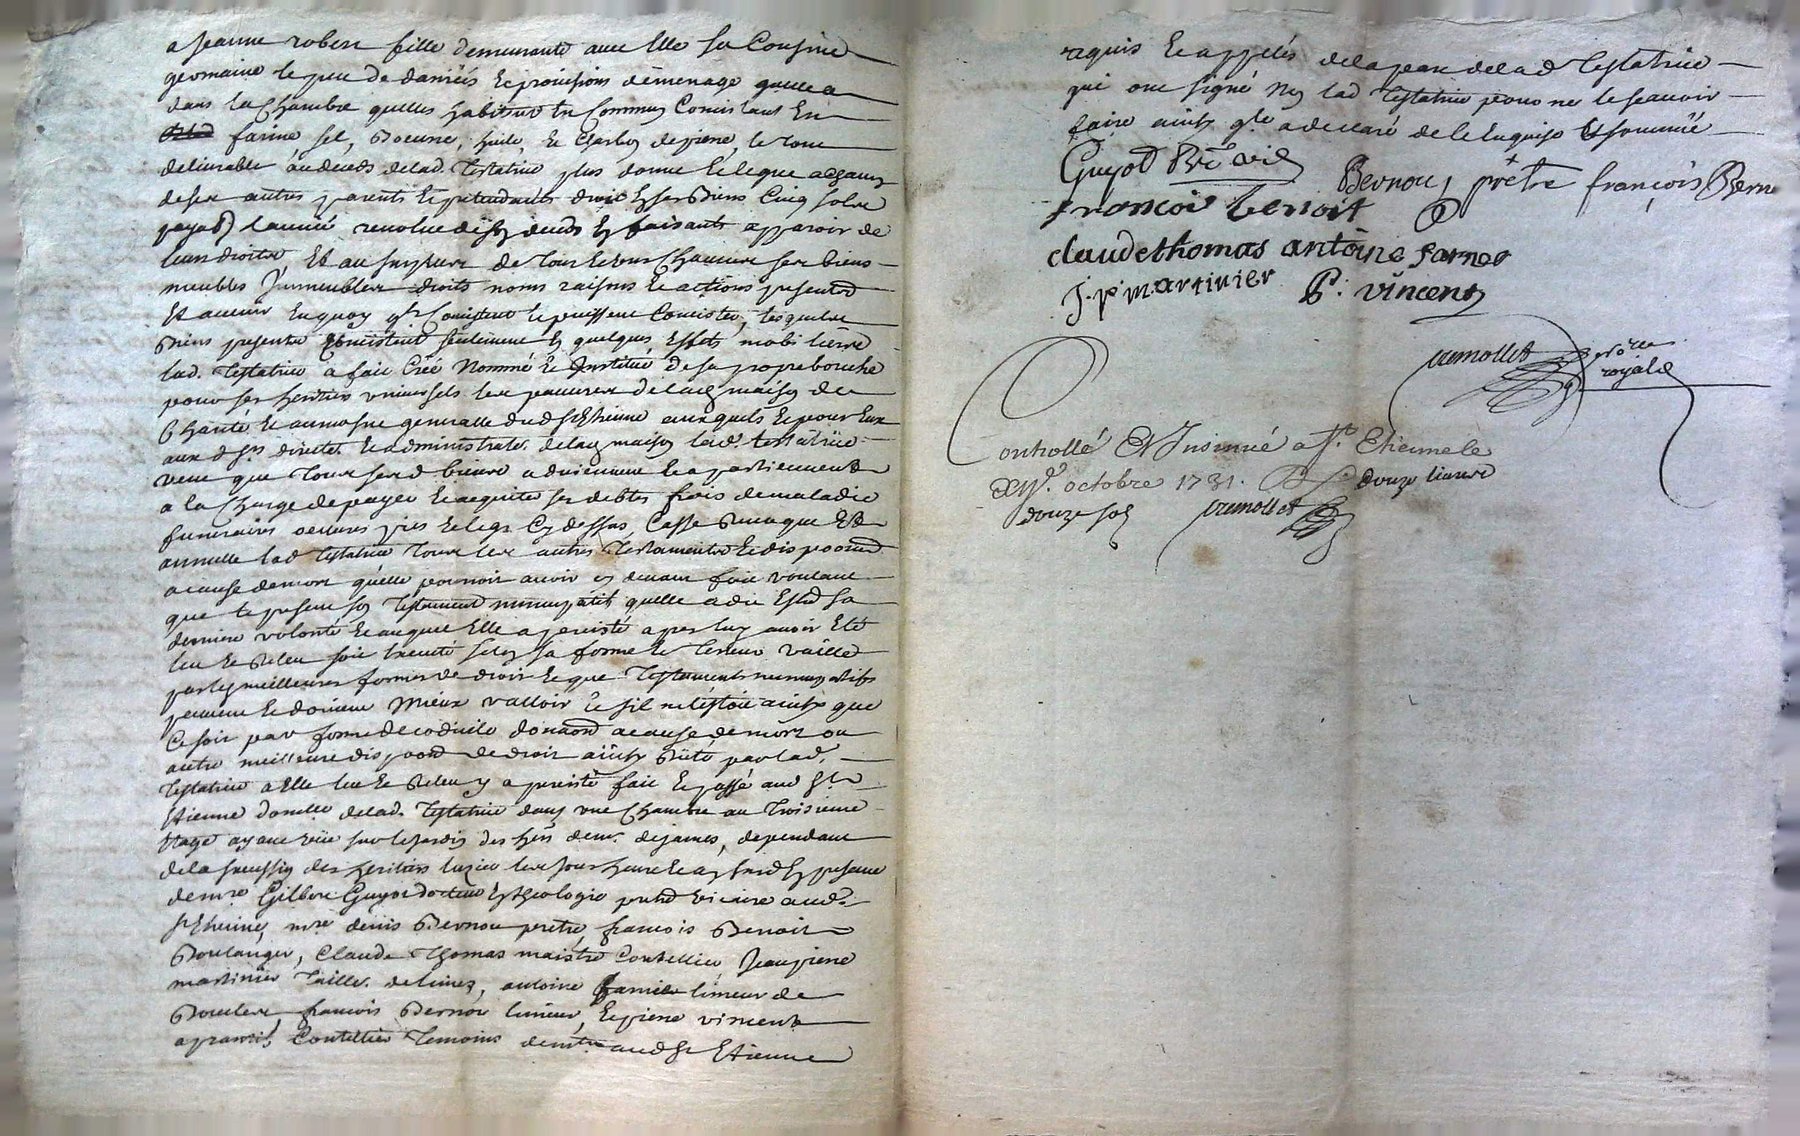 a jeanne robert fille demeurante avec Elle sa Cousine
germaine le peu de danrées Et provisions dêmenage quelle a
dans la Chambre quelles habitent En Commun Consistant En
farine, sel, Beurre, huile, Et Charbon de pierre, le tout
delivrable audeceds delad. Testatrice plus donne Et legue achacun
deses autres parents Et pretendants droit En ses Biens Cinq sols
payab. lannée revolue dud. son deceds En faisant apparoir de
leurs droits Et au surplus de Tous Et Uns Chacuns ses biens
meubles Immeubles droits noms raisons Et actions presents
Et avenir En quoy qls Consistent Et puissent Consister, lesquels
Biens presents Consistent seulement En quelques Effets mobiliers
lad. Testatrice a fait Créé Nommé Et Institué De sa propre bouche
pour ses heritiers universels les pauvres delad. maison de
Charité Et aumosne generalle dud. St Ethienne auxquels Et pour Eux
aux d. srs directrs. Et administratrs. delad. maison lad. testatrice
veut que Tous sesd. biens adviennent Et apartiennent
a la Charge de payer Et acquiter ses debtes frais de maladie
funeraires oeuvres pies Et legs Cy dessus, Casse Revoque Et
annulle lad. Testatrice Tous les autres Testaments Et dispoons
a cause de mort quelle pourroit avoir cy devant fait voulant
que le present son Testament nuncupatif quelle a dit Estre sa
derniere volonté Et auquel Elle a persisté apres luy avoir Eté
leu Et Releu soit Executé selon sa forme Et Teneur vaille
par les meilleures formes de droit Et que Testaments nuncupatifs
peuvent Et doivent Mieux valloir Et sil netoit ainsy que
Ce soit par forme de codicile donaon acause de mort ou
autre meilleure dispoon de droit ainsy Dicté par lad.
Testatrice a Elle leu Et Releu y a persisté fait Et passé aud. St
Etienne domlle delad. Testatrice dans une Chambre au Troisieme
Etage ayant viüe sur le jardin des hers demr. dejames, dependant
de la maison des heritiers les jour heure Et an susd. En presence
de mre Gilbert Guyot docteur En theologie vicaire aud.
St Etienne, mre denis Bernou pretre, francois Benoit
Boulanger, Claude Thomas maistre Coutellier Jean pierre
martinier Tailler. delimes, antoine limeur de
Boucles francois Bernou limeur, Et pierre vincent
aprantif Coutellier Temoins demts. aud. St Etienne
requis Et appelés dela part delad. Testatrice
qui ont signé Non lad. Testatrice pour ne le scavoir
faire ainsy qle a declaré de ce Enquise Et sommée
Guyot Ptre vic
Bernou, prêtre françois Bernou
francois benoit
claude thomas antoine farner
J. p. martinier P. vincent
cremollet nore royal
Controllé Et Insinué a St. Etienne le
octobre 1731. R. douze livres
douze sols cremollet